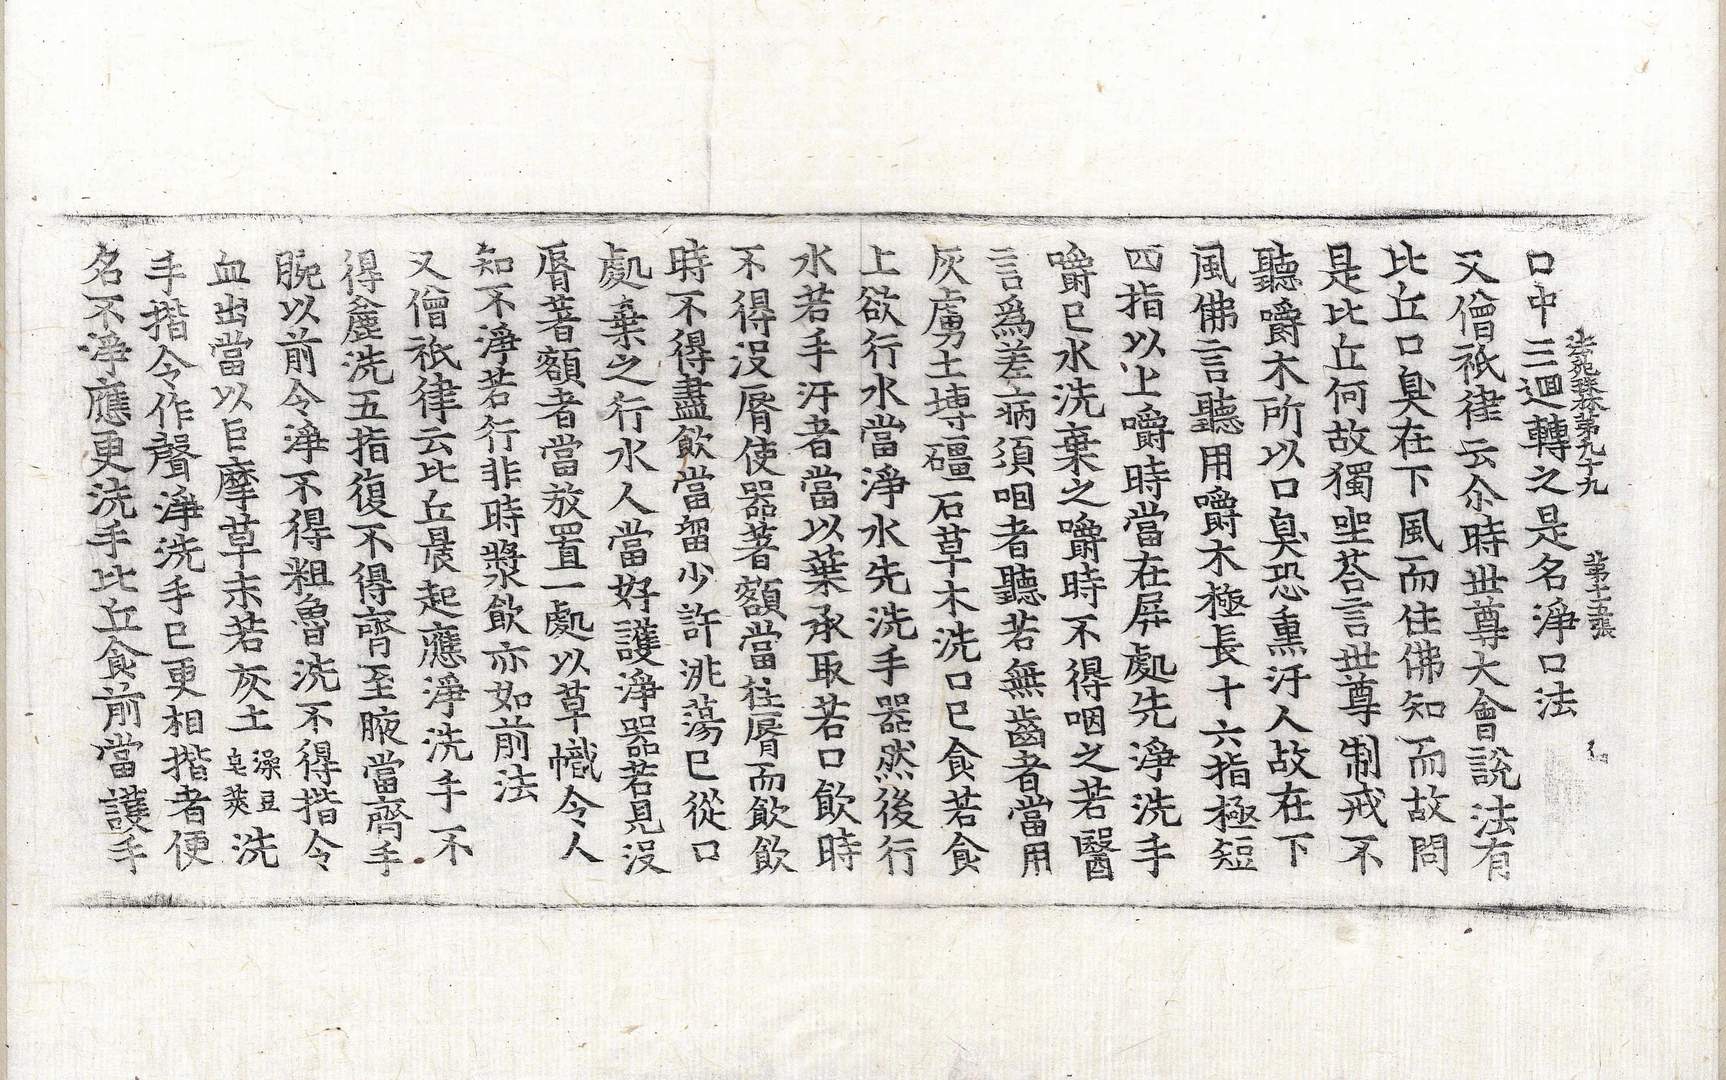 法苑珠林第九十九　第十五張
口中三迴轉之是名淨口法
又僧祇律云尒時世尊大會說法有
比丘口臭在下風而住佛知而故問
是比丘何故獨坐荅言世尊制戒不
聽嚼木所以口臭恐熏汙人故在下
風佛言聽用嚼木極長十六指極短
四指以上嚼時當在屏處先淨洗手
嚼已水洗棄之嚼時不得咽之若醫
言爲差病須咽者聽若無齒者當用
灰鹵土塼礓石草木洗口已食若食
上欲行水當淨水先洗手器然後行
水若手汙者當以葉承取若口飲時
不得沒脣使器著額當拄脣而飲飲
時不得盡飲當留少許洮蕩已從口
處棄之行水人當好護淨器若見沒
脣著額者當放置一處以草幟令人
知不淨若行非時漿飲亦如前法
又僧祇律云比丘晨起應淨洗手不
得麁洗五指復不得齊至腋當齊手
腕以前令淨不得粗魯洗不得揩令
血出當以巨摩草末若灰土澡豆皂莢洗
手揩令作聲淨洗手已更相揩者便
名不淨應更洗手比丘食前當護手